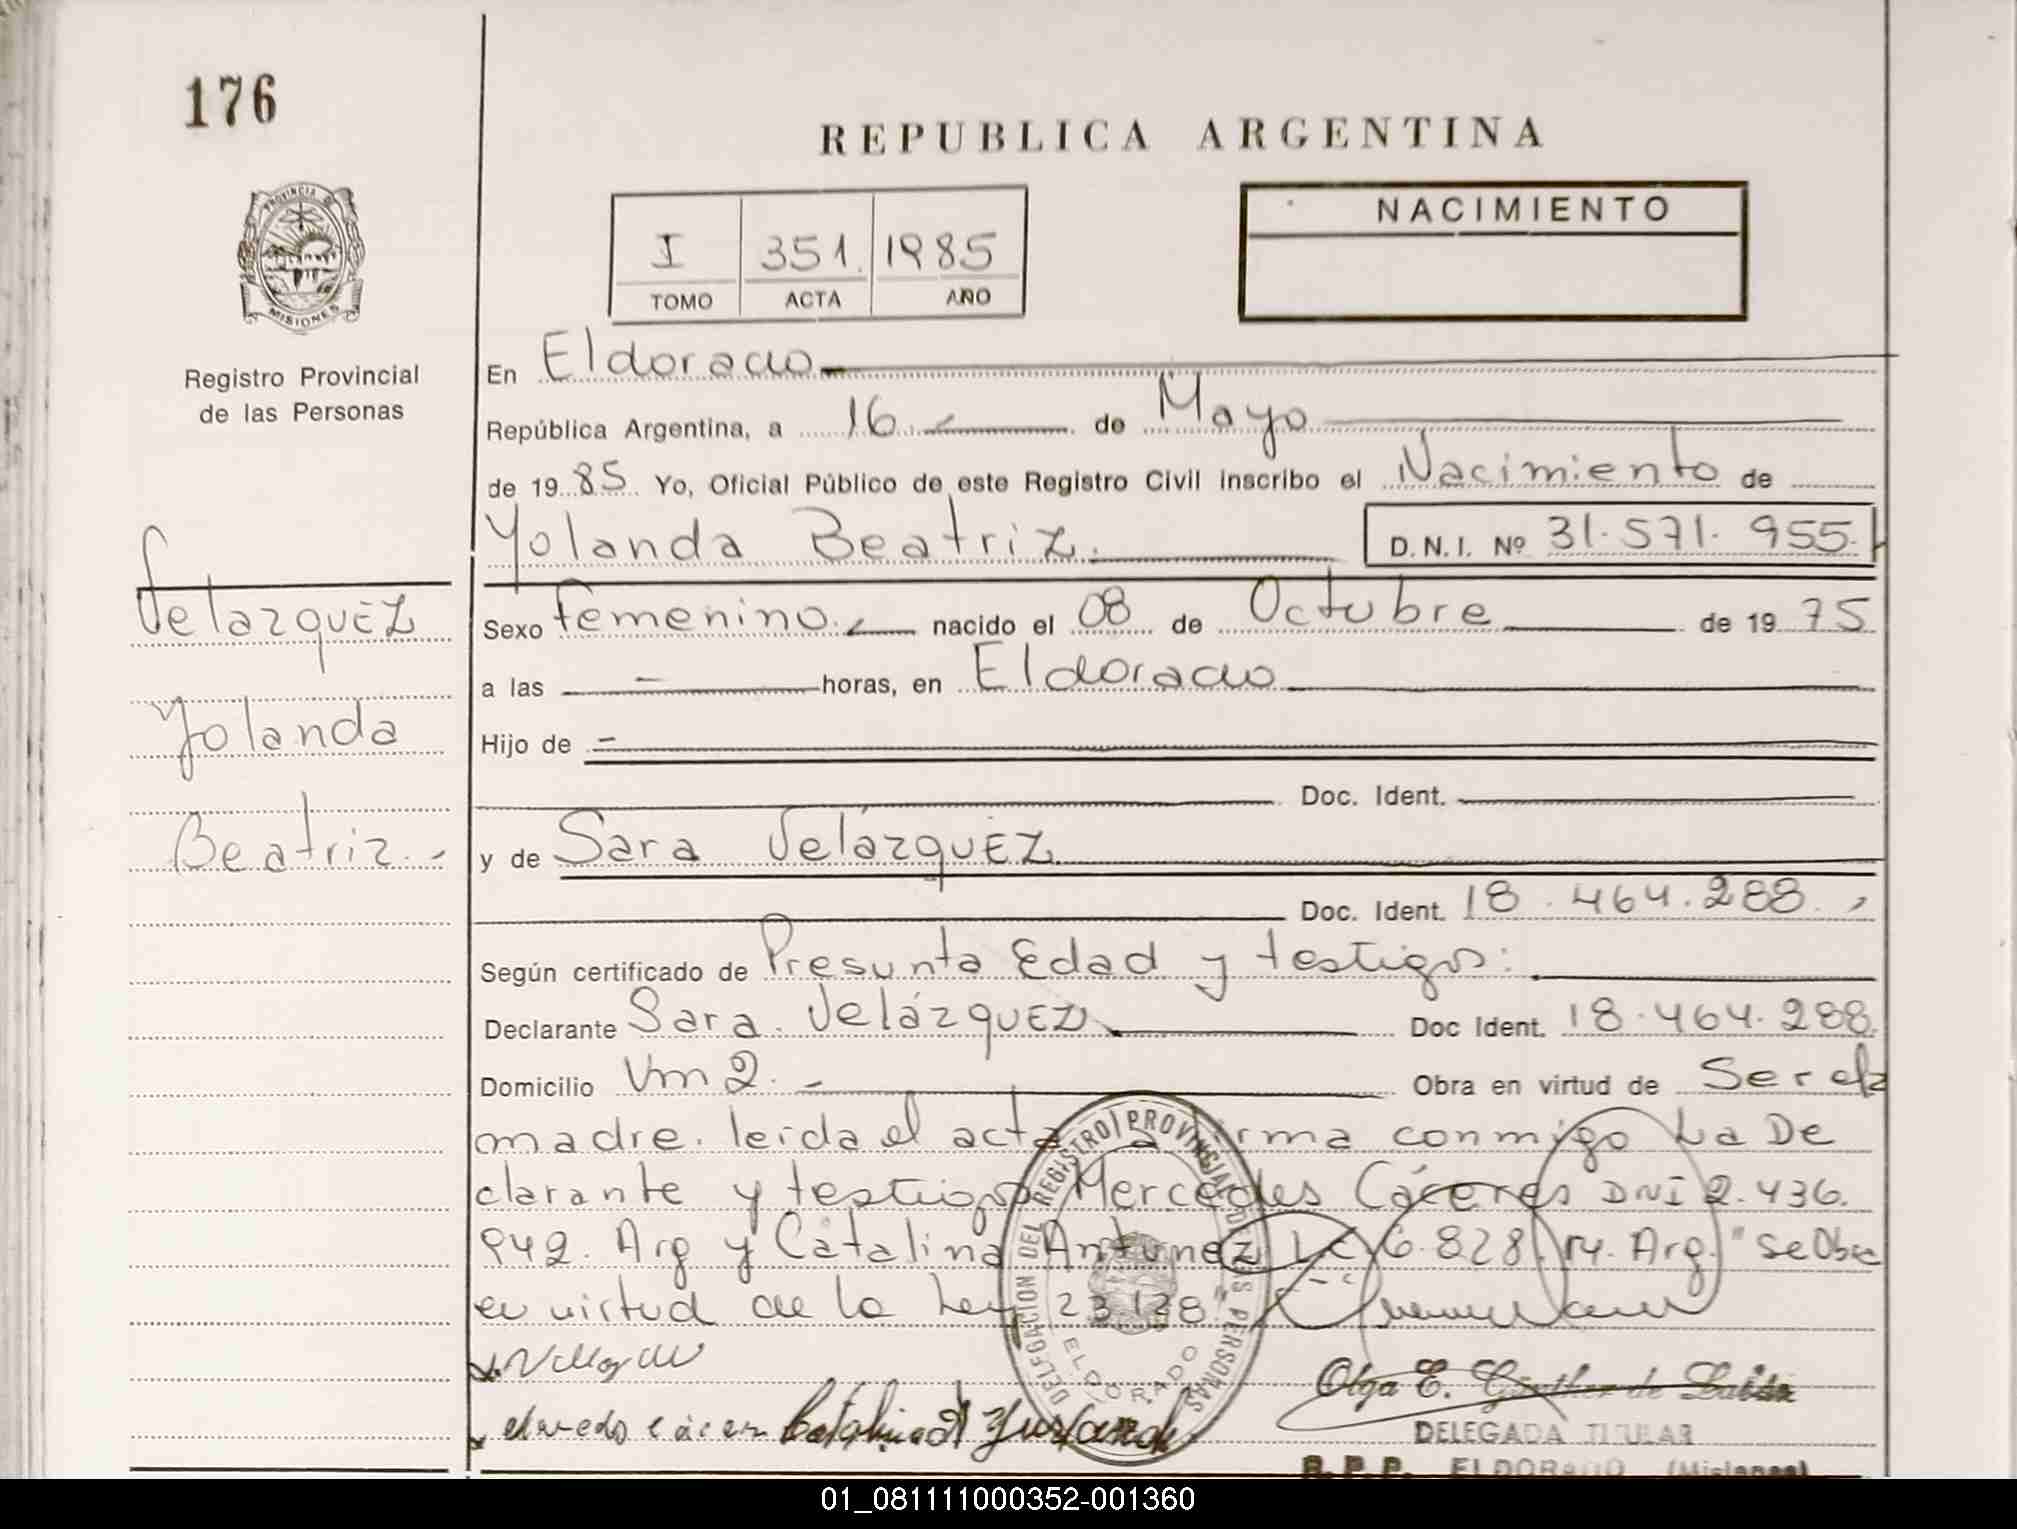 176
REPUBLICA ARGENTINA
PROVINCIA D
MISIONES
I 351. 1985
TOMO ACTA AÑO
NACIMIENTO
Registro Provincial
de las Personas
En Eldorado
República Argentina, a 16 de Mayo
de 1985 Yo, Oficial Público de este Registro Civil inscribo el Nacimiento de
Yolanda Beatriz. D.N.I. Nº 31.571.955.
Velazquez
Yolanda
Beatriz.-
Sexo femenino. nacido el 08 de Octubre de 1975
a las — horas, en Eldorado
Hijo de -
Doc. Ident.
y de Sara Velázquez
Doc. Ident. 18.464.288.
Según certificado de Presunta Edad y testigos:
Declarante Sara Velázquez Doc Ident. 18.464.288.
Domicilio Vm 2. - Obra en virtud de Ser la
madre. leida el acta la firma conmigo La De
clarante y testigos Mercedes Cáceres DNI 2.436.
942. Arg y Catalina Antunez LC 6.828. Arg. "Se Obra
en virtud de la Ley 23128"
DELEGACION DEL REGISTRO PROVINCIAL DE LAS PERSONAS
ELDORADO
Olga E. de
DELEGADA TITULAR
R.P.P. ELDORADO (Misiones)
01_081111000352-001360